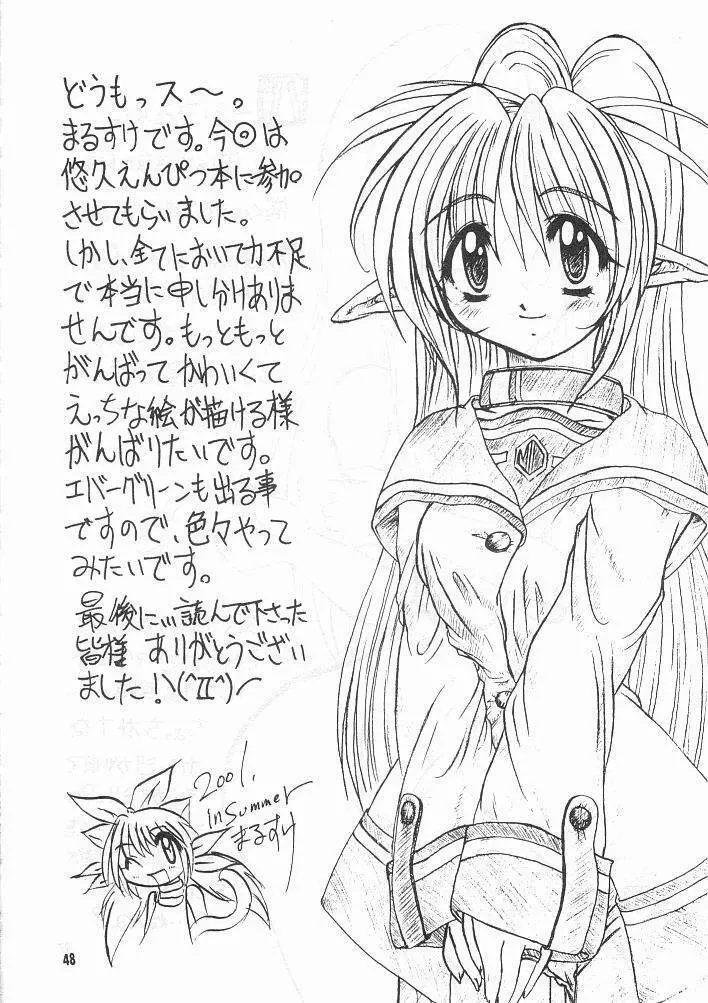 どうもっス〜。
まるすけです。今回は
悠久えんぴつ本に参加
させてもらいました。
しかし、全てにおいて力不足
で本当に申し分けありま
せんです。もっともっと
がんばってかわいくて
えっちな絵が描ける様
がんばりたいです。
エバーグリーンも出る事
ですので、色々やって
みたいです。
最後に…読んで下さった
皆様 ありがとうござい
ました!\(^Д^)ノ
2001.
in Summer
まるすけ
48